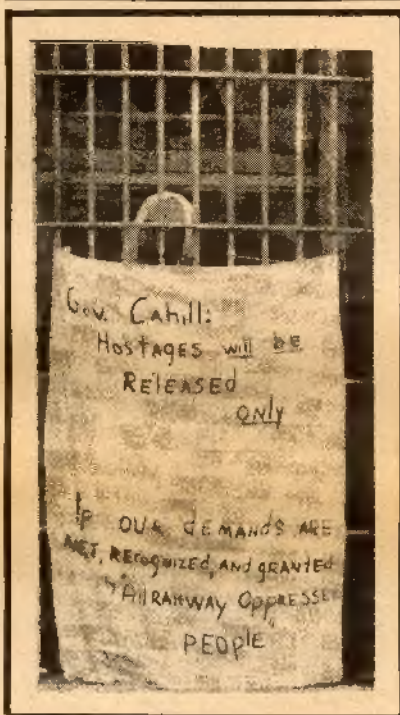 Gov. Cahill:
Hostages will be
Released
only
IF OUR demands ARE
MET, Recognized, and granted
"All RAHWAY OppResse
PEOplE"